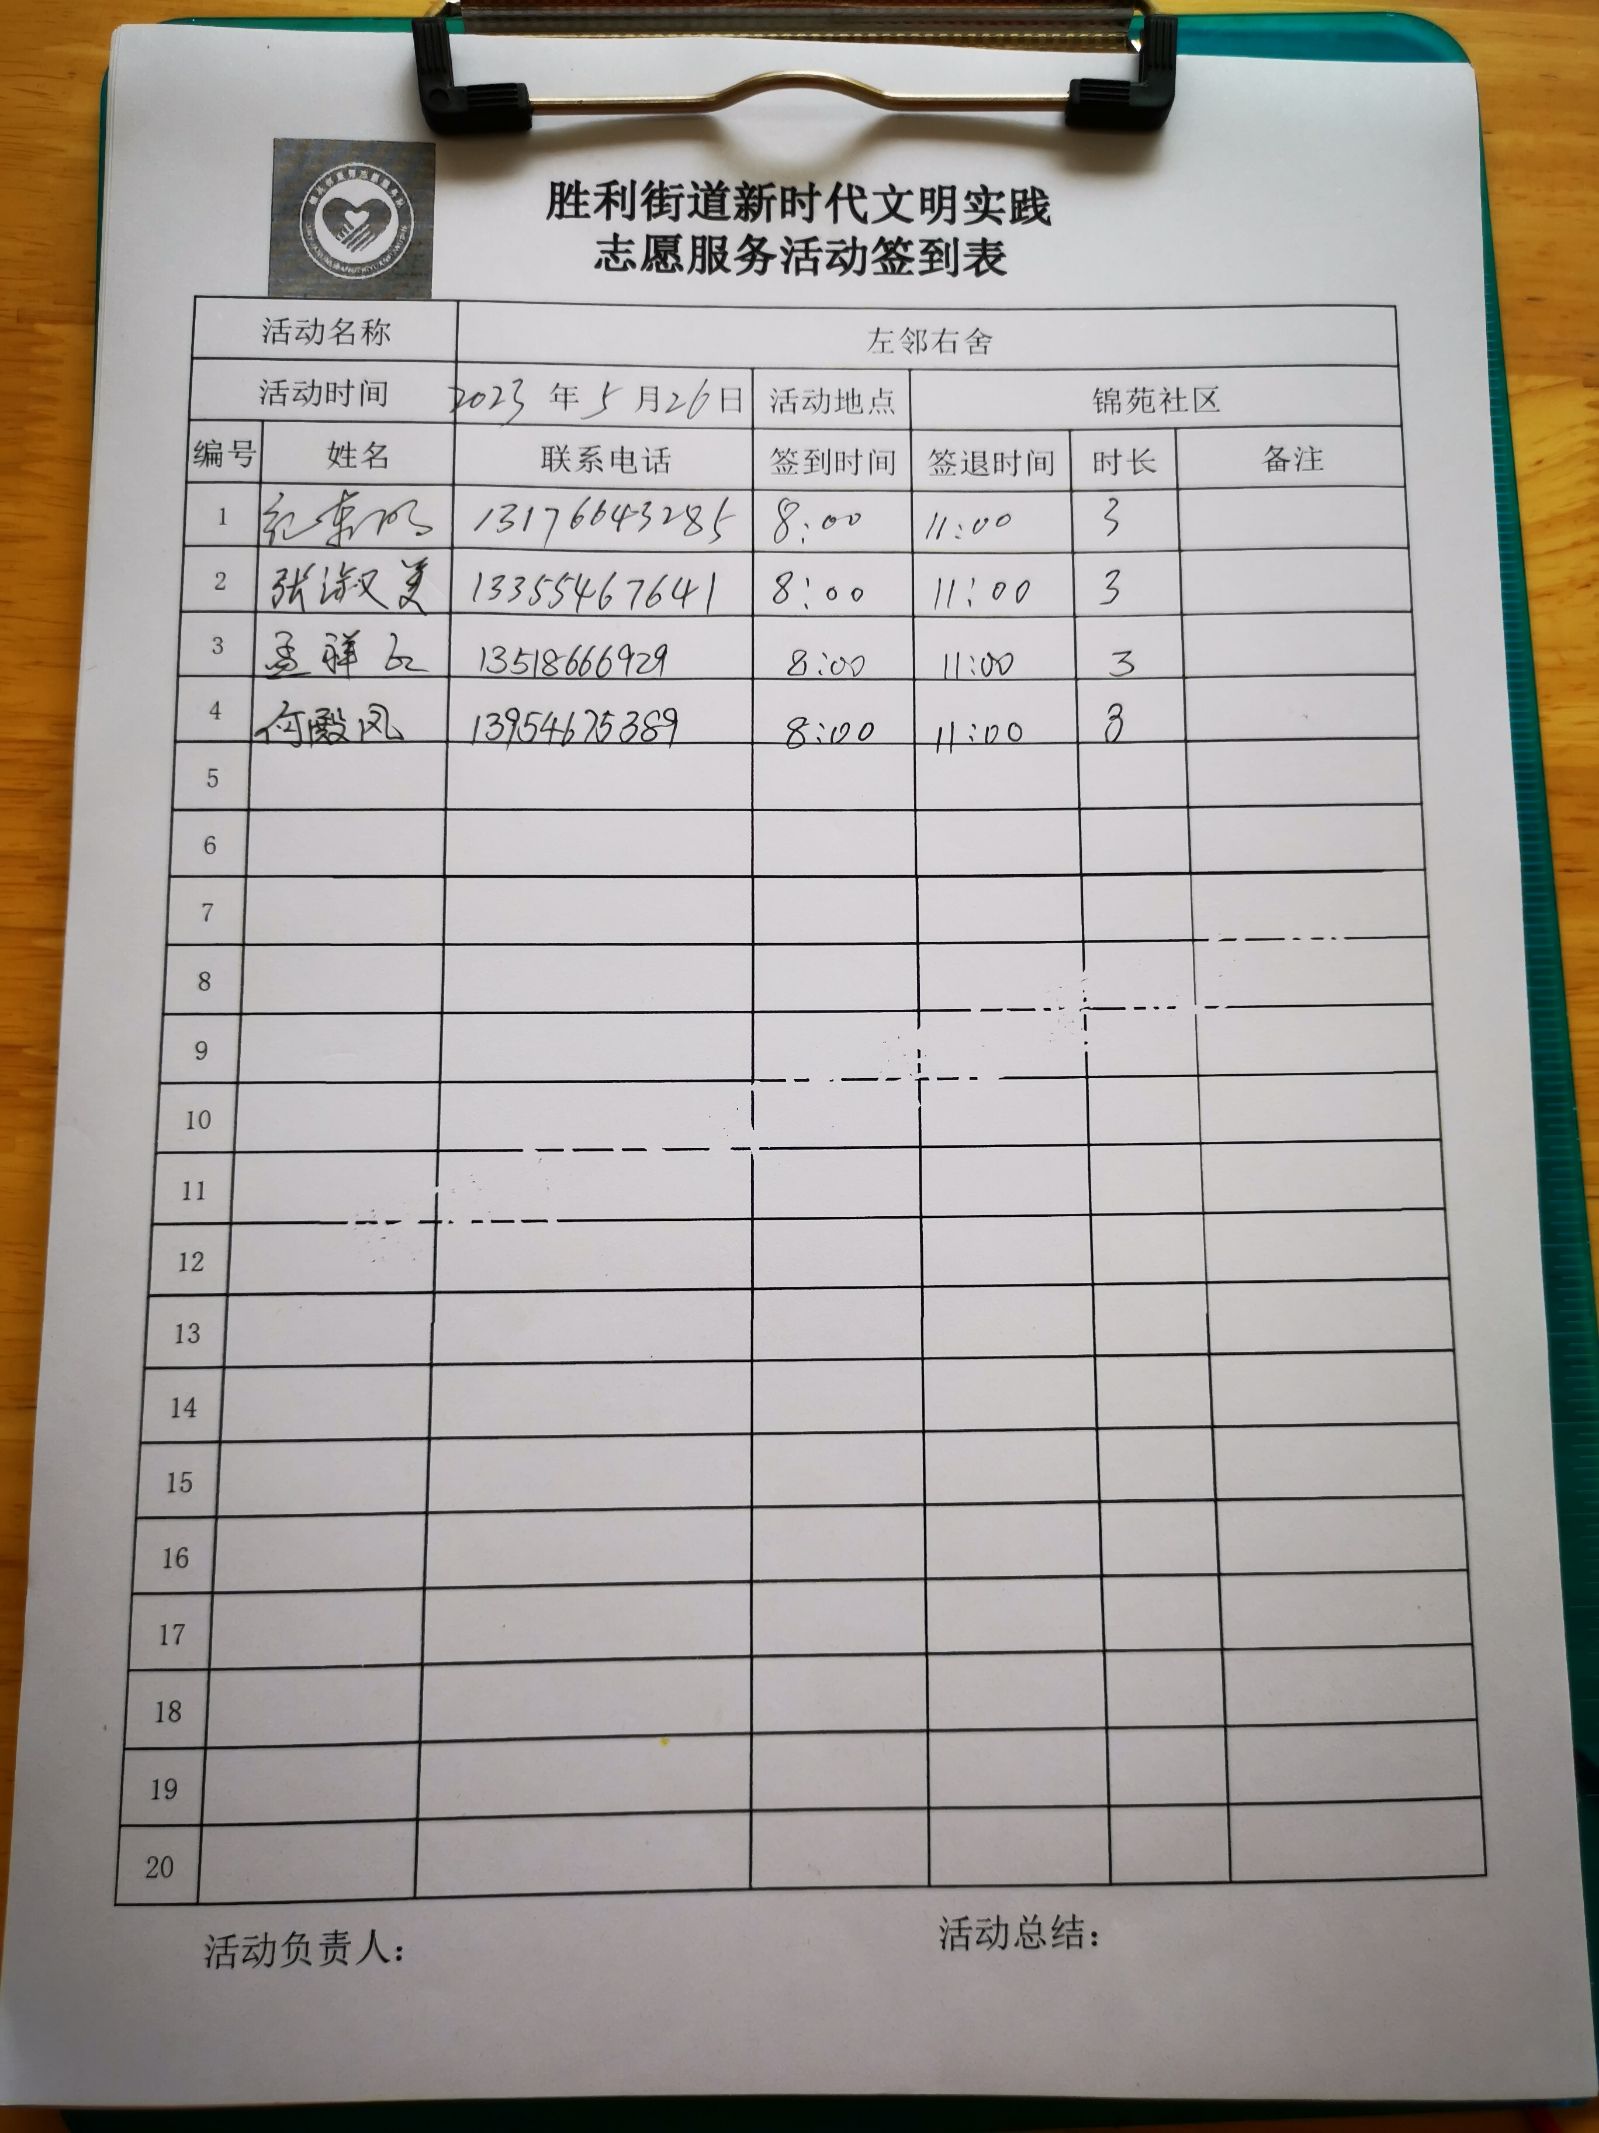 胜利街道新时代文明实践
志愿服务活动签到表
活动名称 左邻右舍
活动时间 2023 年 5 月 26 日 活动地点 锦苑社区
编号 姓名 联系电话 签到时间 签退时间 时长 备注
1 13176643285 8:00 11:00 3
2 张淑美 13355467641 8:00 11:00 3
3 孟祥红 13518666929 8:00 11:00 3
4 何殿凤 13954675389 8:00 11:00 3
5
6
7
8
9
10
11
12
13
14
15
16
17
18
19
20
活动负责人: 活动总结: